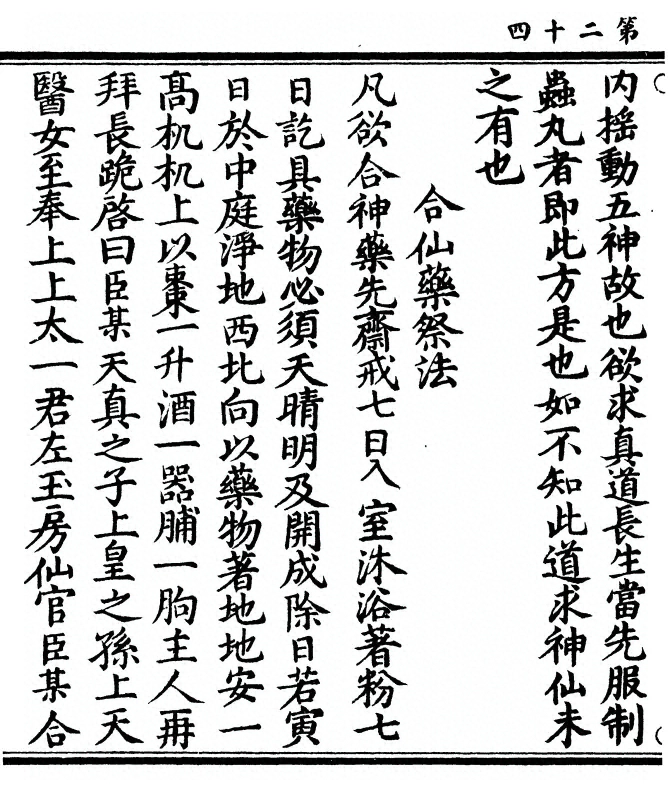 第二十四
内搖動五神故也欲求真道長生當先服制
蟲丸者即此方是也如不知此道求神仙未
之有也
合仙藥祭法
凡欲合神藥先齋戒七日入室沐浴著粉七
日訖具藥物必須天晴明及開成除日若寅
日於中庭淨地西北向以藥物著地地安一
高机机上以棗一升酒一器脯一朐主人再
拜長跪啓曰臣某天真之子上皇之孫上天
醫女至奉上上太一君左玉房仙官臣某合